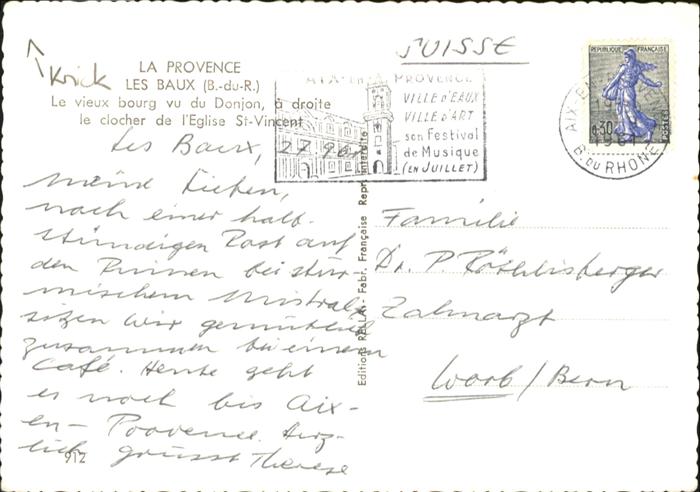 SUISSE
Krick
LA PROVENCE
LES BAUX (B.-du-R.)
Le vieux bourg vu du Donjon, à droite
le clocher de l'Eglise St-Vincent
AIX-EN-PROVENCE
VILLE d'EAUX
VILLE d'ART
son Festival
de Musique
(EN JUILLET)
REPUBLIQUE FRANÇAISE
0,30
POSTES
AIX-EN-
1961
B. DU RHONE
Les Baux, 27.9.61
meine Lieben,
nach einer halb-
stündigen Rast auf
den Ruinen bei stür-
mischem Mistral
sitzen wir gemütlich
zusammen bei einem
Café. Heute geht
es noch bis Aix-
en-Provence. Herz-
lich grüsst Therese
912
Editions RELLA - Fabr. Française Repr. interdite
Familie
Dr. P. Röthlisberger
Zahnarzt
Worb / Bern